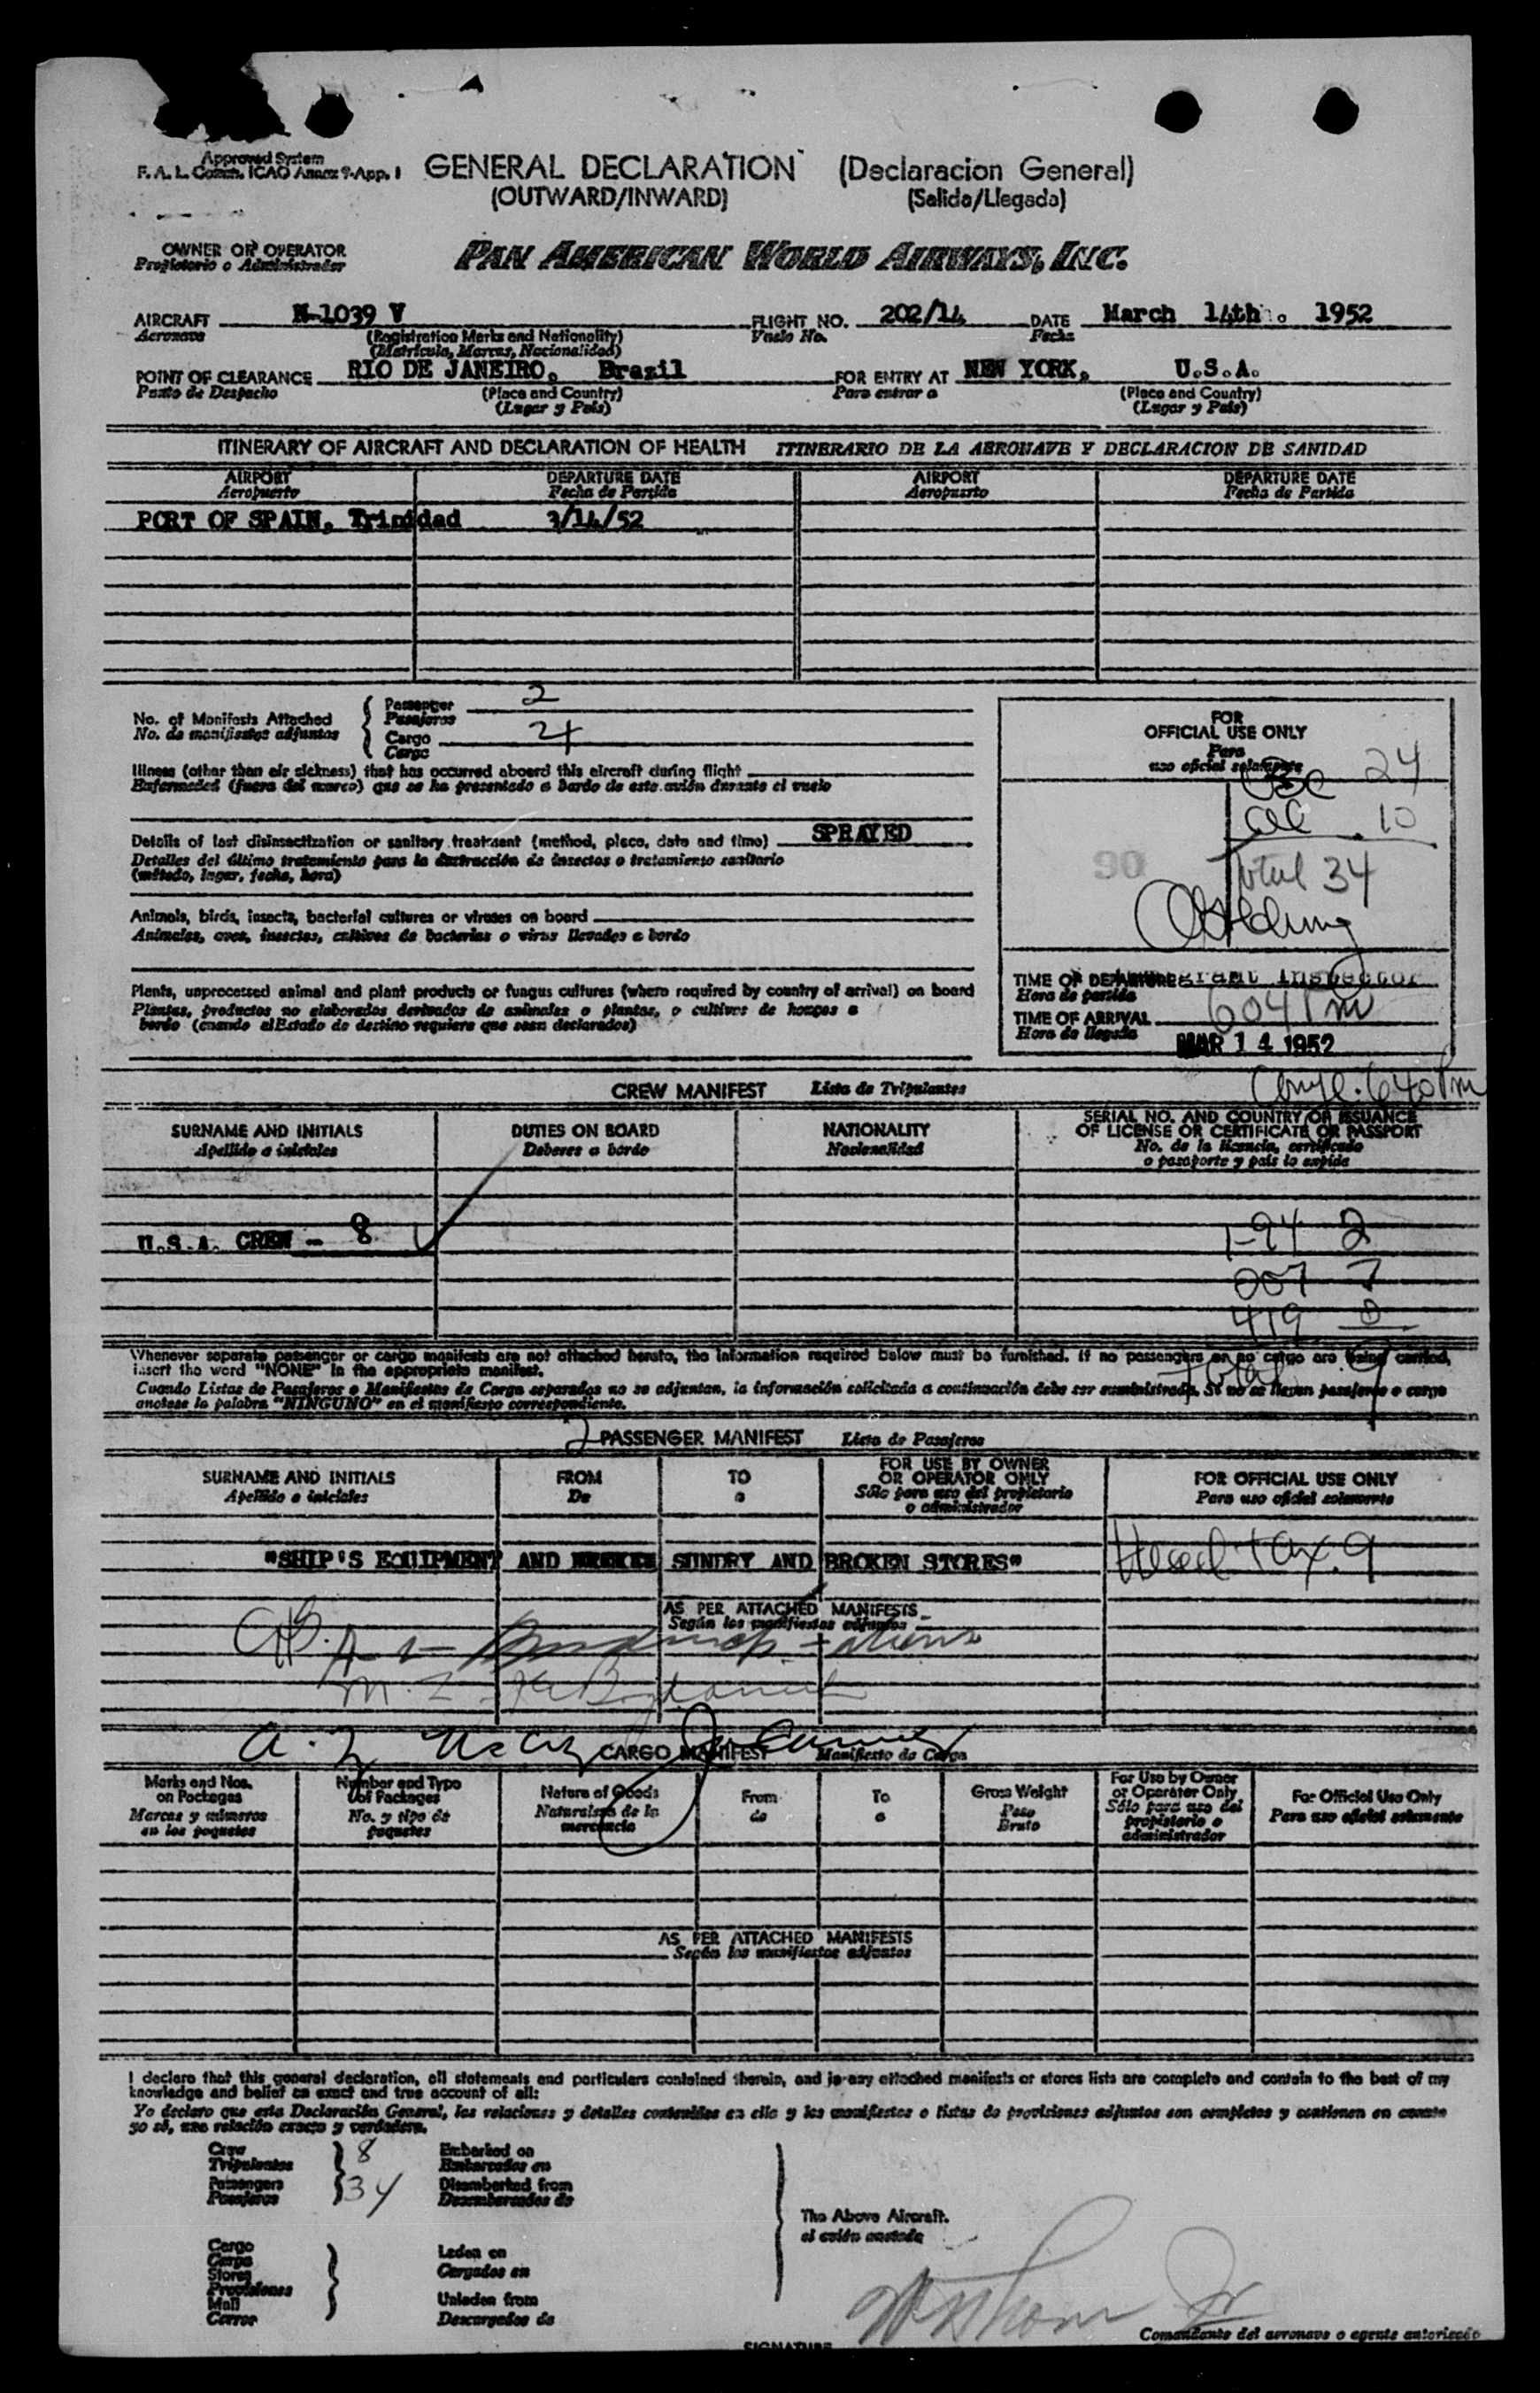 Approved System
F. A. L. Comm. ICAO Annex 9-App. 1
GENERAL DECLARATION (Declaracion General)
(OUTWARD/INWARD) (Salida/Llegada)
OWNER OR OPERATOR
Propietario o Administrador
PAN AMERICAN WORLD AIRWAYS, INC.
AIRCRAFT N-1039 V FLIGHT NO. 202/14 DATE March 14th. 1952
Aeronave (Registration Marks and Nationality) Vuelo No. Fecha
(Matrícula, Marcas, Nacionalidad)
POINT OF CLEARANCE RIO DE JANEIRO, Brazil FOR ENTRY AT NEW YORK, U.S.A.
Punto de Despacho (Place and Country) Para entrar a (Place and Country)
(Lugar y País) (Lugar y País)
ITINERARY OF AIRCRAFT AND DECLARATION OF HEALTH ITINERARIO DE LA AERONAVE Y DECLARACION DE SANIDAD
AIRPORT DEPARTURE DATE AIRPORT DEPARTURE DATE
Aeropuerto Fecha de Partida Aeropuerto Fecha de Partida
PORT OF SPAIN, Trinidad 3/14/52
No. of Manifests Attached
No. de manifiestos adjuntos
Passenger 2
Pasajeros
Cargo 24
Carga
Illness (other than air sickness) that has occurred aboard this aircraft during flight
Enfermedad (fuera del mareo) que se ha presentado a bordo de este avión durante el vuelo
Details of last disinsectization or sanitary treatment (method, place, date and time) SPRAYED
Detalles del último tratamiento para la destrucción de insectos o tratamiento sanitario
(método, lugar, fecha, hora)
Animals, birds, insects, bacterial cultures or viruses on board
Animales, aves, insectos, cultivos de bacterias o virus llevados a bordo
Plants, unprocessed animal and plant products or fungus cultures (where required by country of arrival) on board
Plantas, productos no elaborados derivados de animales o plantas, o cultivos de hongos a
bordo (cuando el Estado de destino requiera que sean declarados)
FOR
OFFICIAL USE ONLY
Para
uso oficial solamente
USC 24
all 10
90
Total 34
TIME OF DEPARTURE grant Inspector
Hora de partida
TIME OF ARRIVAL 604 PM
Hora de llegada
MAR 14 1952
Compl. 640 Pm
CREW MANIFEST Lista de Tripulantes
SURNAME AND INITIALS DUTIES ON BOARD NATIONALITY SERIAL NO. AND COUNTRY OF ISSUANCE
OF LICENSE OR CERTIFICATE OR PASSPORT
Apellido e iniciales Deberes a bordo Nacionalidad No. de la licencia, certificado
o pasaporte y país lo expide
U.S.A. CREW - 8
I-94 2
257 7
419 0
Total 9
Whenever separate passenger or cargo manifests are not attached hereto, the information required below must be furnished. If no passengers or no cargo are being carried,
insert the word "NONE" in the appropriate manifest.
Cuando Listas de Pasajeros o Manifiestos de Carga separados no se adjuntan, la información solicitada a continuación debe ser suministrada. Si no se llevan pasajeros o carga
anotese la palabra "NINGUNO" en el manifiesto correspondiente.
2 PASSENGER MANIFEST Lista de Pasajeros
SURNAME AND INITIALS FROM TO FOR USE BY OWNER
OR OPERATOR ONLY FOR OFFICIAL USE ONLY
Apellido e iniciales De a Sólo para uso del propietario
o administrador Para uso oficial solamente
"SHIP'S EQUIPMENT AND SUNDRY AND BROKEN STORES"
Head tax 9
AS PER ATTACHED MANIFESTS
Según los manifiestos adjuntos
CARGO MANIFEST Manifiesto de Carga
Marks and Nos.
on Packages
Marcas y números
en los paquetes
Number and Type
of Packages
No. y tipo de
paquetes
Nature of Goods
Naturaleza de la
mercancía
From
de
To
a
Gross Weight
Peso
Bruto
For Use by Owner
or Operator Only
Sólo para uso del
propietario o
administrador
For Official Use Only
Para uso oficial solamente
AS PER ATTACHED MANIFESTS
Según los manifiestos adjuntos
I declare that this general declaration, all statements and particulars contained therein, and in any attached manifests or stores lists are complete and contain to the best of my
knowledge and belief an exact and true account of all:
Yo declaro que esta Declaración General, las relaciones y detalles contenidos en ella y los manifiestos o listas de provisiones adjuntos son completos y contienen en cuanto
yo sé, una relación exacta y verdadera.
Crew
Tripulantes
8
Passengers
Pasajeros
34
Embarked on
Embarcados en
Disembarked from
Desembarcados de
The Above Aircraft.
el avión anotado
Cargo
Carga
Stores
Provisiones
Mail
Correo
Laden on
Cargados en
Unladen from
Descargados de
SIGNATURE
Comandante del aeronave o agente autorizado